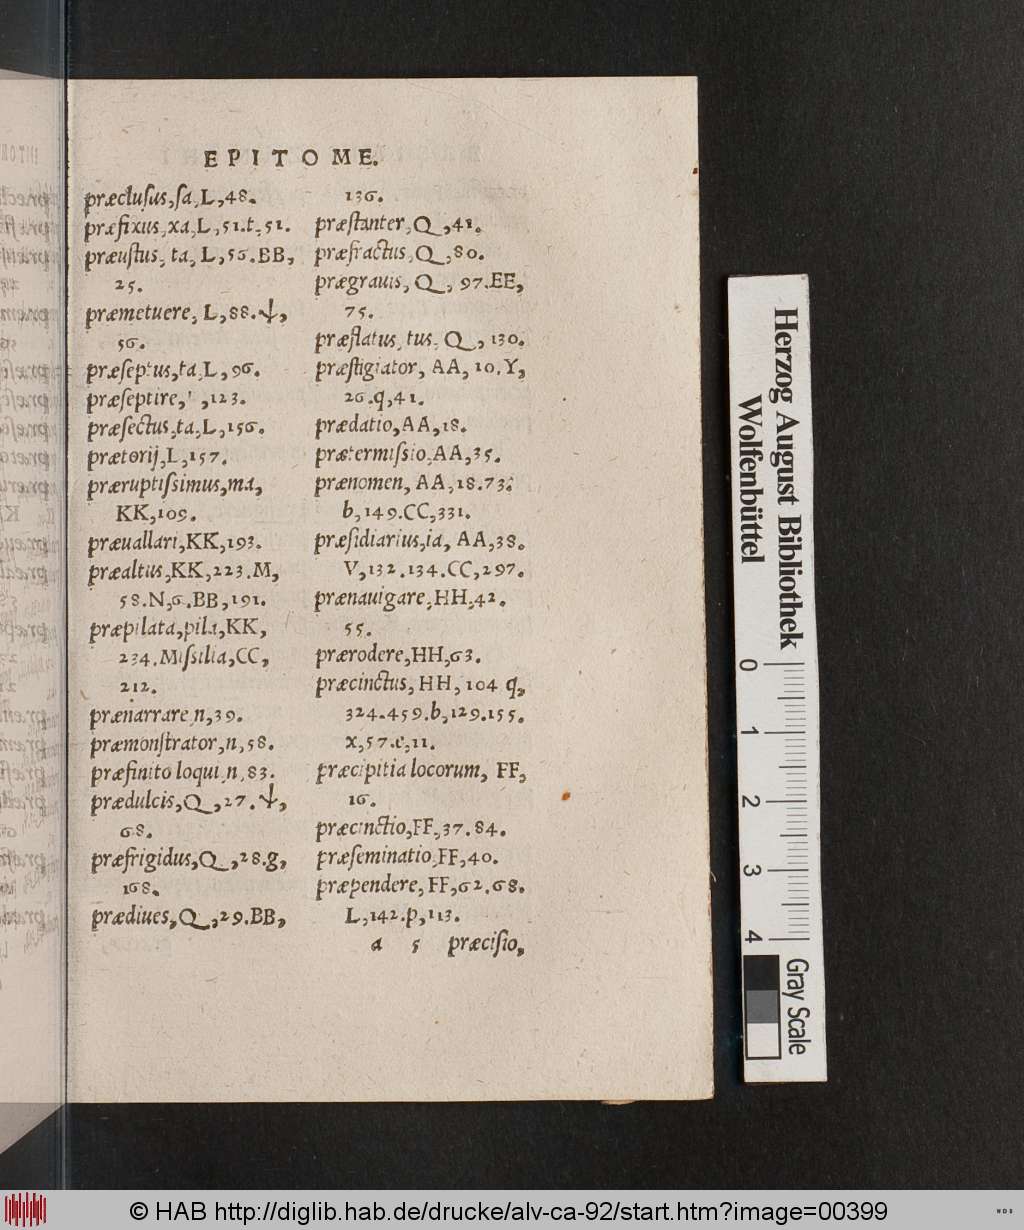 EPITOME.
præclusus,sa,L,48.
præfixus,xa,L,51.t,51.
præustus, ta, L,56.BB,
25.
præmetuere, L,88.ψ,
56.
præseptus,ta,L,96.
præseptire, ,123.
præsectus,ta,L,156.
prætorij,L,157.
præruptissimus,ma,
KK,109.
præuallari,KK,193.
præaltus,KK,223.M,
58.N,6.BB,191.
præpilata,pila,KK,
234.Missilia,CC,
212.
prænarrare n,39.
præmonstrator,n,58.
præfinito loqui,n,83.
prædulcis,Q,27.ψ,
68.
præfrigidus,Q,28.g,
168.
prædiues,Q,29.BB,
136.
præstanter,Q,41.
præfractus,Q,80.
prægrauis, Q, 97.EE,
75.
præflatus, tus, Q, 130.
præstigiator, AA, 10.Y,
26.q,41.
prædatio,AA,18.
prætermissio,AA,35.
prænomen, AA,18.73.
b,149.CC,331.
præsidiarius,ia, AA,38.
V,132.134.CC,297.
prænauigare,HH,42.
55.
prærodere,HH,63.
præcinctus, HH, 104 q,
324.459.b,129.155.
x,57.c,11.
præcipitia locorum, FF,
16.
præcinctio,FF,37.84.
præseminatio,FF,40.
præpendere, FF,62.68.
L,142.p,113.
a 5 præcisio,
Herzog August Bibliothek
Wolfenbüttel
0 1 2 3 4
Gray Scale
© HAB http://diglib.hab.de/drucke/alv-ca-92/start.htm?image=00399
WDB